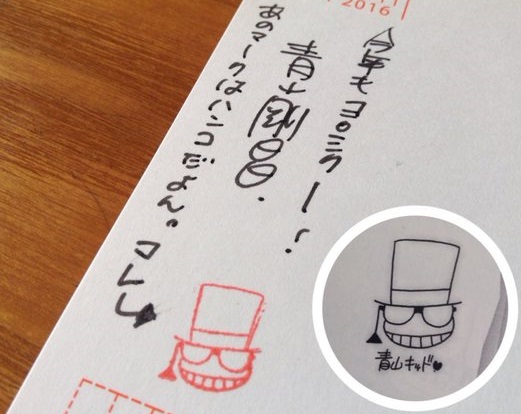 2016
今年もヨロシクー!
青山剛昌.
あのマークはハンコだよん。コレ
青山キッド♥